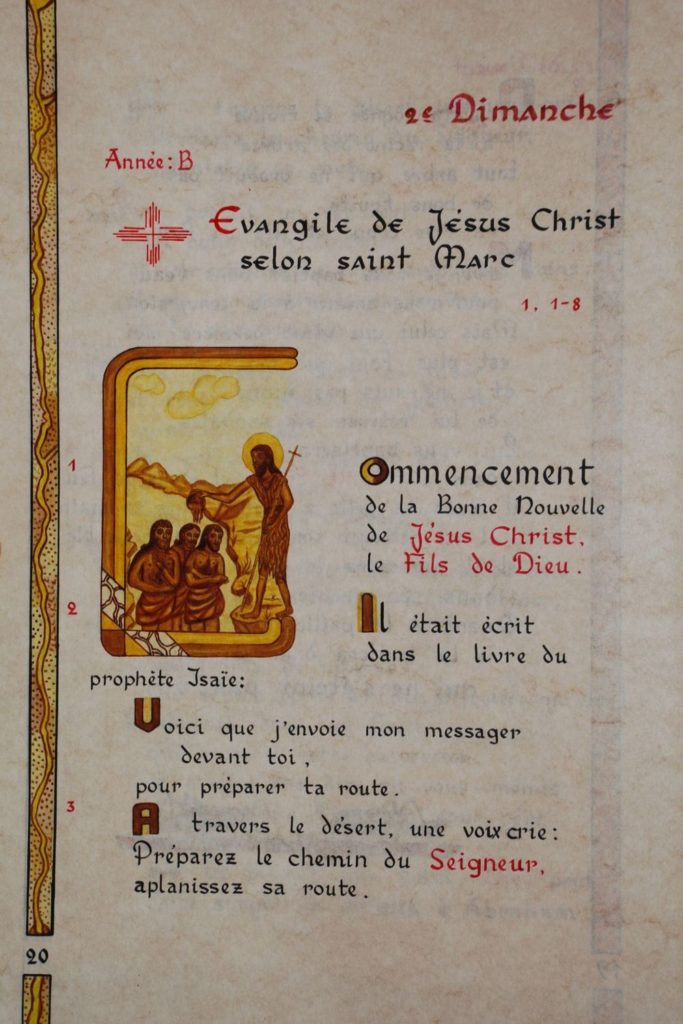 2e Dimanche
Année: B
Evangile de Jésus Christ
selon saint Marc
1, 1-8
1
Commencement
de la Bonne Nouvelle
de Jésus Christ,
le Fils de Dieu.
2
Il était écrit
dans le livre du
prophète Isaïe:
Voici que j'envoie mon messager
devant toi,
pour préparer ta route.
3
A travers le désert, une voix crie:
Préparez le chemin du Seigneur,
aplanissez sa route.
20